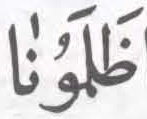 ظَلَمُونٰا